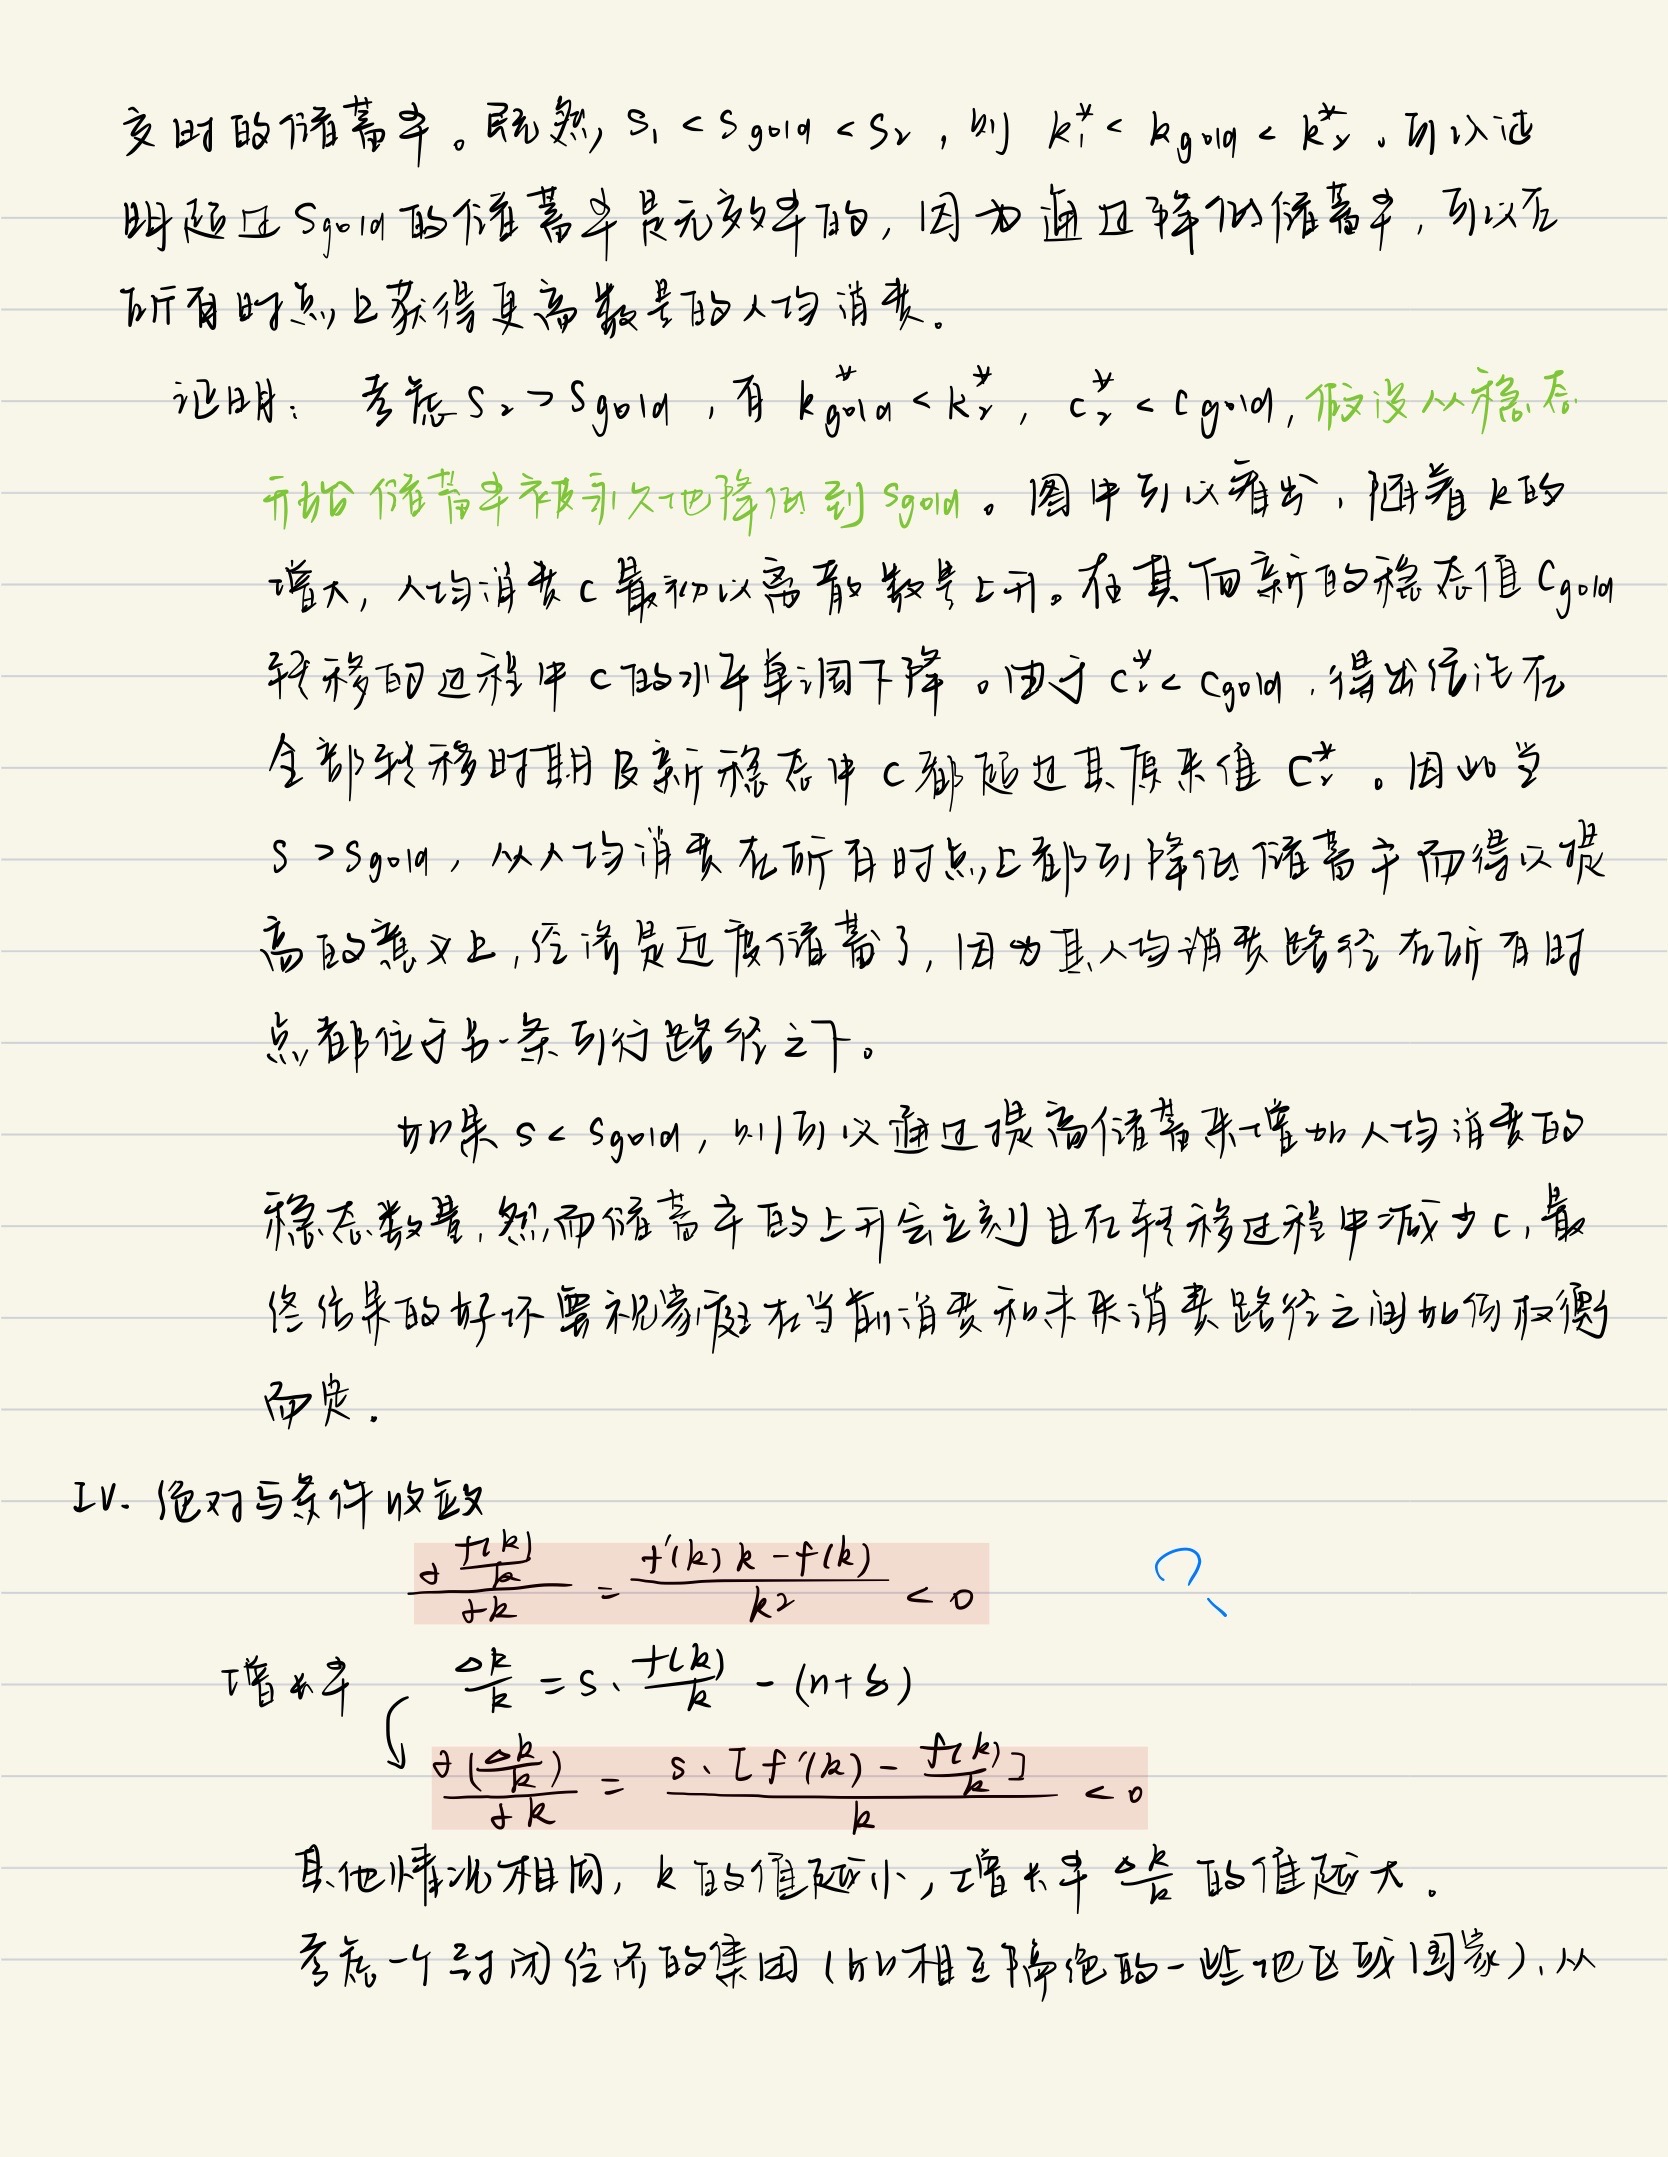 交时的储蓄率。既然, s₁ < s gold < s₂ , 则 k₁* < k gold < k₂* 。可以证
明超过 s gold 的储蓄率是无效率的, 因为通过降低储蓄率, 可以在
所有时点上获得更高数量的人均消费。
证明: 考虑 s₂ > s gold , 有 k* gold < k₂* , c₂* < c gold, 假设从稳态
开始储蓄率被永久地降低到 s gold 。图中可以看出, 随着 k 的
增大, 人均消费 c 最初以离散数量上升。在其向新的稳态值 C gold
转移的过程中 c 的水平单调下降。由于 c₂* < c gold , 得出结论在
全部转移时期及新稳态中 c 都超过其原来值 C₂* 。因此当
s > s gold, 从人均消费在所有时点上都可降低储蓄率而得以提
高的意义上, 经济是过度储蓄了, 因为其人均消费路径在所有时
点都位于另一条可行路径之下。
如果 s < s gold, 则可以通过提高储蓄来增加人均消费的
稳态数量, 然而储蓄率的上升会立刻且在转移过程中减少 c, 最
终结果的好坏要视家庭在当前消费和未来消费路径之间如何权衡
而定.
IV. 绝对与条件收敛
∂(f(k)/k)/∂k = (f'(k)k - f(k))/k² < 0 ?
增长率 Δk/k = s · f(k)/k - (n+δ)
∂(Δk/k)/∂k = s · [f'(k) - f(k)/k]/k < 0
其他情况相同, k 的值越小, 增长率 Δk/k 的值越大。
考虑一个封闭经济的集团 (如相互隔绝的一些地区或国家), 从